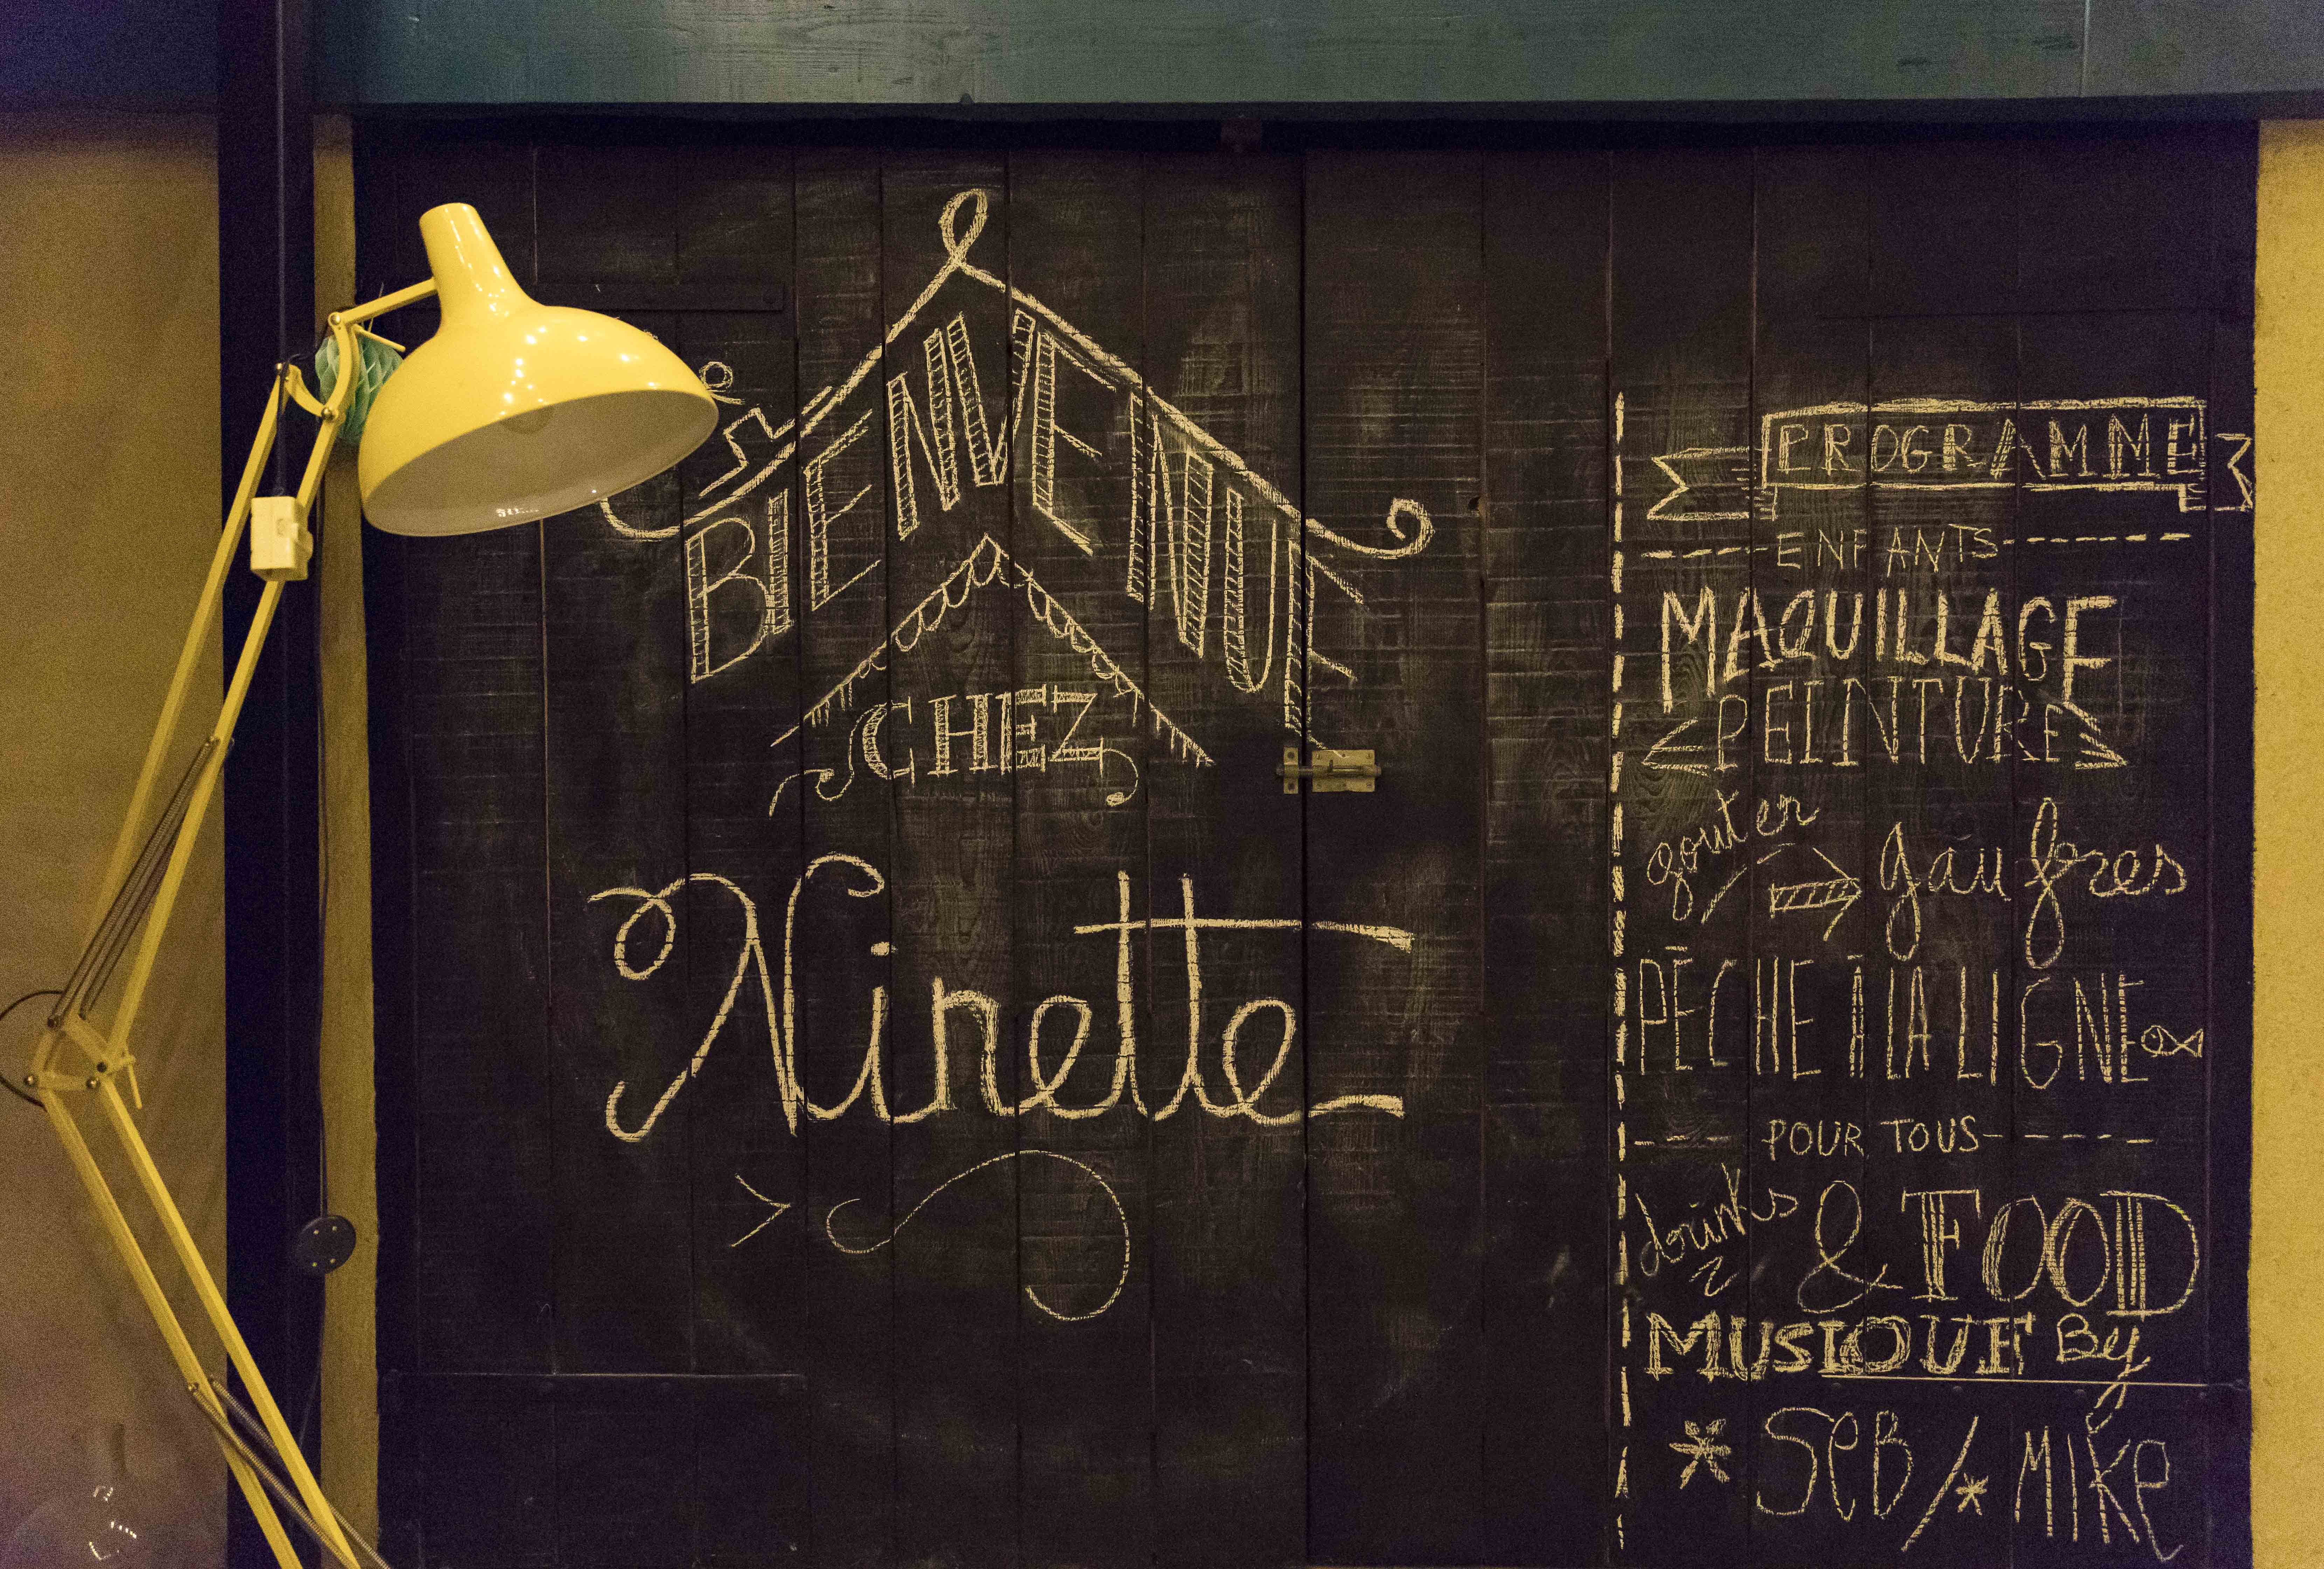 BIENVENUE
CHEZ
Ninette
PROGRAMME
ENFANTS
MAQUILLAGE
PEINTURE
gouter gaufres
PÊCHE À LA LIGNE
POUR TOUS
drinks & FOOD
MUSIQUE By
SeB / MIKe